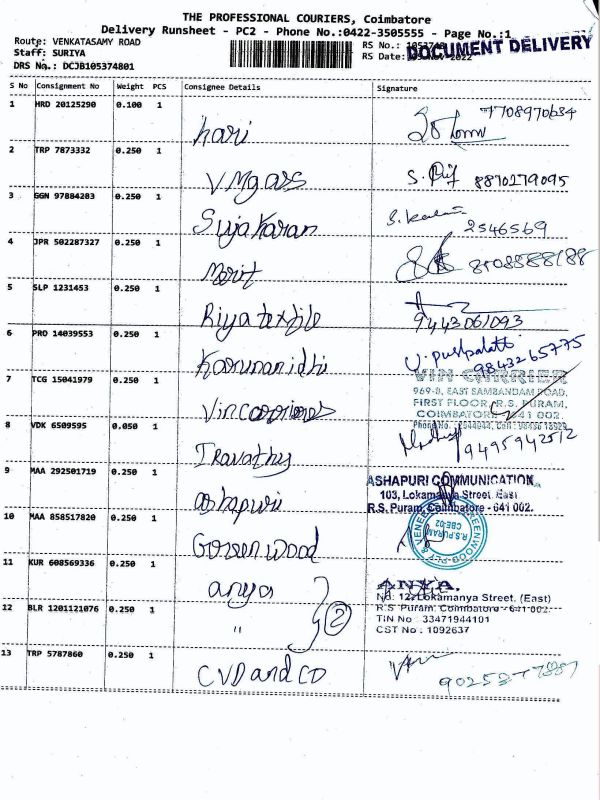 THE PROFESSIONAL COURIERS, Coimbatore
Delivery Runsheet - PC2 - Phone No.:0422-3505555 - Page No.:1
Route: VENKATASAMY ROAD
Staff: SURIYA
DRS No.: DCJB105374801
RS No.:
RS Date:
DOCUMENT DELIVERY
S No Consignment No Weight PCS Consignee Details Signature
1 HRD 20125290 0.100 1 hari 7708970684
2 TRP 7873332 0.250 1 V.Mgars 8870279095
3 GGN 97884283 0.250 1 Sujakaran 2546569
4 JPR 502287327 0.250 1 Morit
5 SLP 1231453 0.250 1 Riya textile 9443061093
6 PRO 14039553 0.250 1 Karunanidhi 9843265775
7 TCG 15041979 0.250 1
VIN CARRIER
969-B, EAST SAMBANDAM ROAD,
FIRST FLOOR, R.S. PURAM,
COIMBATORE - 641 002.
8 VDK 6509595 0.050 1 Iravathy 9495942512
9 MAA 292501719 0.250 1 ashapuri
ASHAPURI COMMUNICATION
103, Lokamanya Street, East
R.S. Puram, Coimbatore - 641 002.
10 MAA 858517820 0.250 1 Green wood
R.S.PURAM
CBE-02
11 KUR 608569336 0.250 1 anya
ANYA.
No: 127, Lokamanya Street. (East)
R.S Puram. Coimbatore - 641 002.
TIN No : 33471944101
CST No : 1092637
12 BLR 1201121076 0.250 1 " 2
13 TRP 5787860 0.250 1 CVD and CD